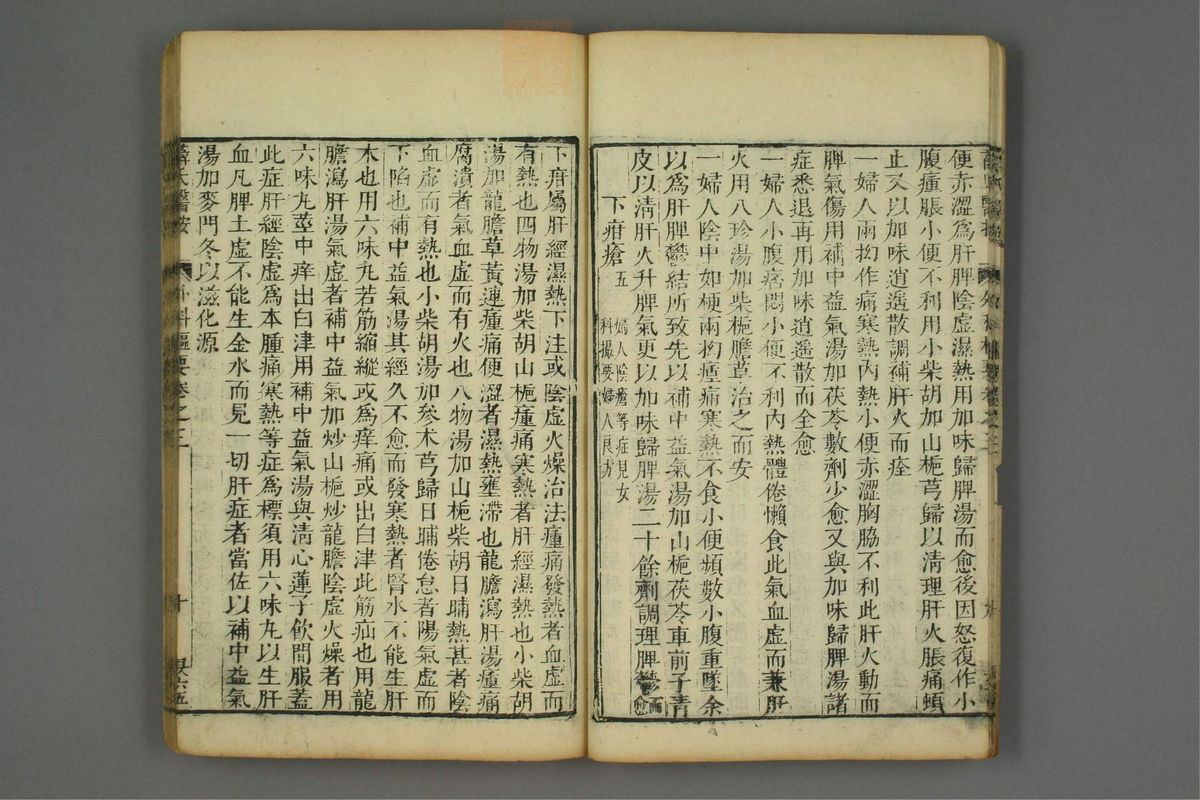 便赤澀爲肝脾陰虛濕熱用加味歸脾湯而愈後因怒復作小
腹痛脹小便不利用小柴胡加山梔芎歸以清理肝火脹痛頓
止又以加味逍遙散調補肝火而痊
一婦人兩拗作痛寒熱內熱小便赤澀胸脇不利此肝火動而
脾氣傷用補中益氣湯加茯苓數劑少愈又與加味歸脾湯諸
症悉退再用加味逍遙散而全愈
一婦人小腹痞悶小便不利內熱體倦懶食此氣血虛而兼肝
火用八珍湯加柴梔膽草治之而安
一婦人陰中如梗兩拗瘇痛寒熱不食小便頻數小腹重墜余
以爲肝脾鬱結所致先以補中益氣湯加山梔茯苓車前子青
皮以清肝火升脾氣更以加味歸脾湯二十餘劑調理脾鬱而愈
下疳瘡五 婦人陰瘡等症見女
科撮要婦人良方
下疳屬肝經濕熱下注或陰虛火燥治法瘇痛發熱者血虛而
有熱也四物湯加柴胡山梔瘇痛寒熱者肝經濕熱也小柴胡
湯加龍膽草黃連瘇痛便澀者濕熱壅滯也龍膽瀉肝湯瘇痛
腐潰者氣血虛而有火也八物湯加山梔柴胡日晡熱甚者陰
血虛而有熱也小柴胡湯加參术芎歸日晡倦怠者陽氣虛而
下陷也補中益氣湯其經久不愈而發寒熱者腎水不能生肝
木也用六味丸若筋縮縱或爲痒痛或出白津此筋疝也用龍
膽瀉肝湯氣虛者補中益氣加炒山梔炒龍膽陰虛火燥者用
六味丸莖中痒出白津用補中益氣湯與清心蓮子飲間服蓋
此症肝經陰虛爲本腫痛寒熱等症爲標須用六味丸以生肝
血凡脾土虛不能生金水而見一切肝症者當佐以補中益氣
湯加麥門冬以滋化源
薛氏醫按 外科樞要卷之三 十